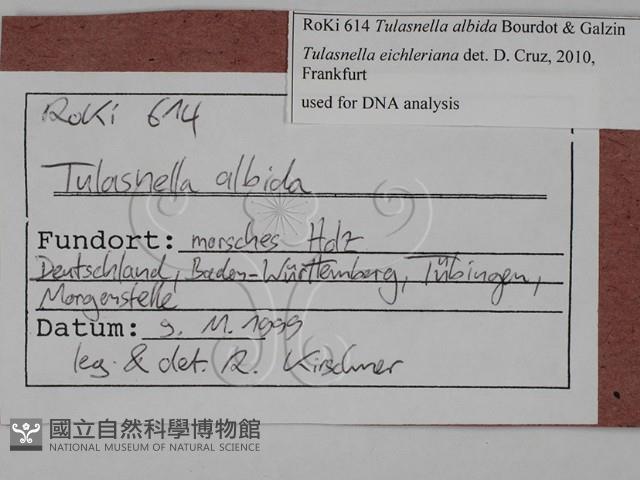 RoKi 614 Tulasnella albida Bourdot & Galzin
Tulasnella eichleriana det. D. Cruz, 2010,
Frankfurt
used for DNA analysis
RoKi 614
Tulasnella albida
Fundort: morsches Holz
Deutschland, Baden-Württemberg, Tübingen,
Morgenstelle
Datum: 9. 11. 1999
leg. & det. R. Kirschner
國立自然科學博物館
NATIONAL MUSEUM OF NATURAL SCIENCE